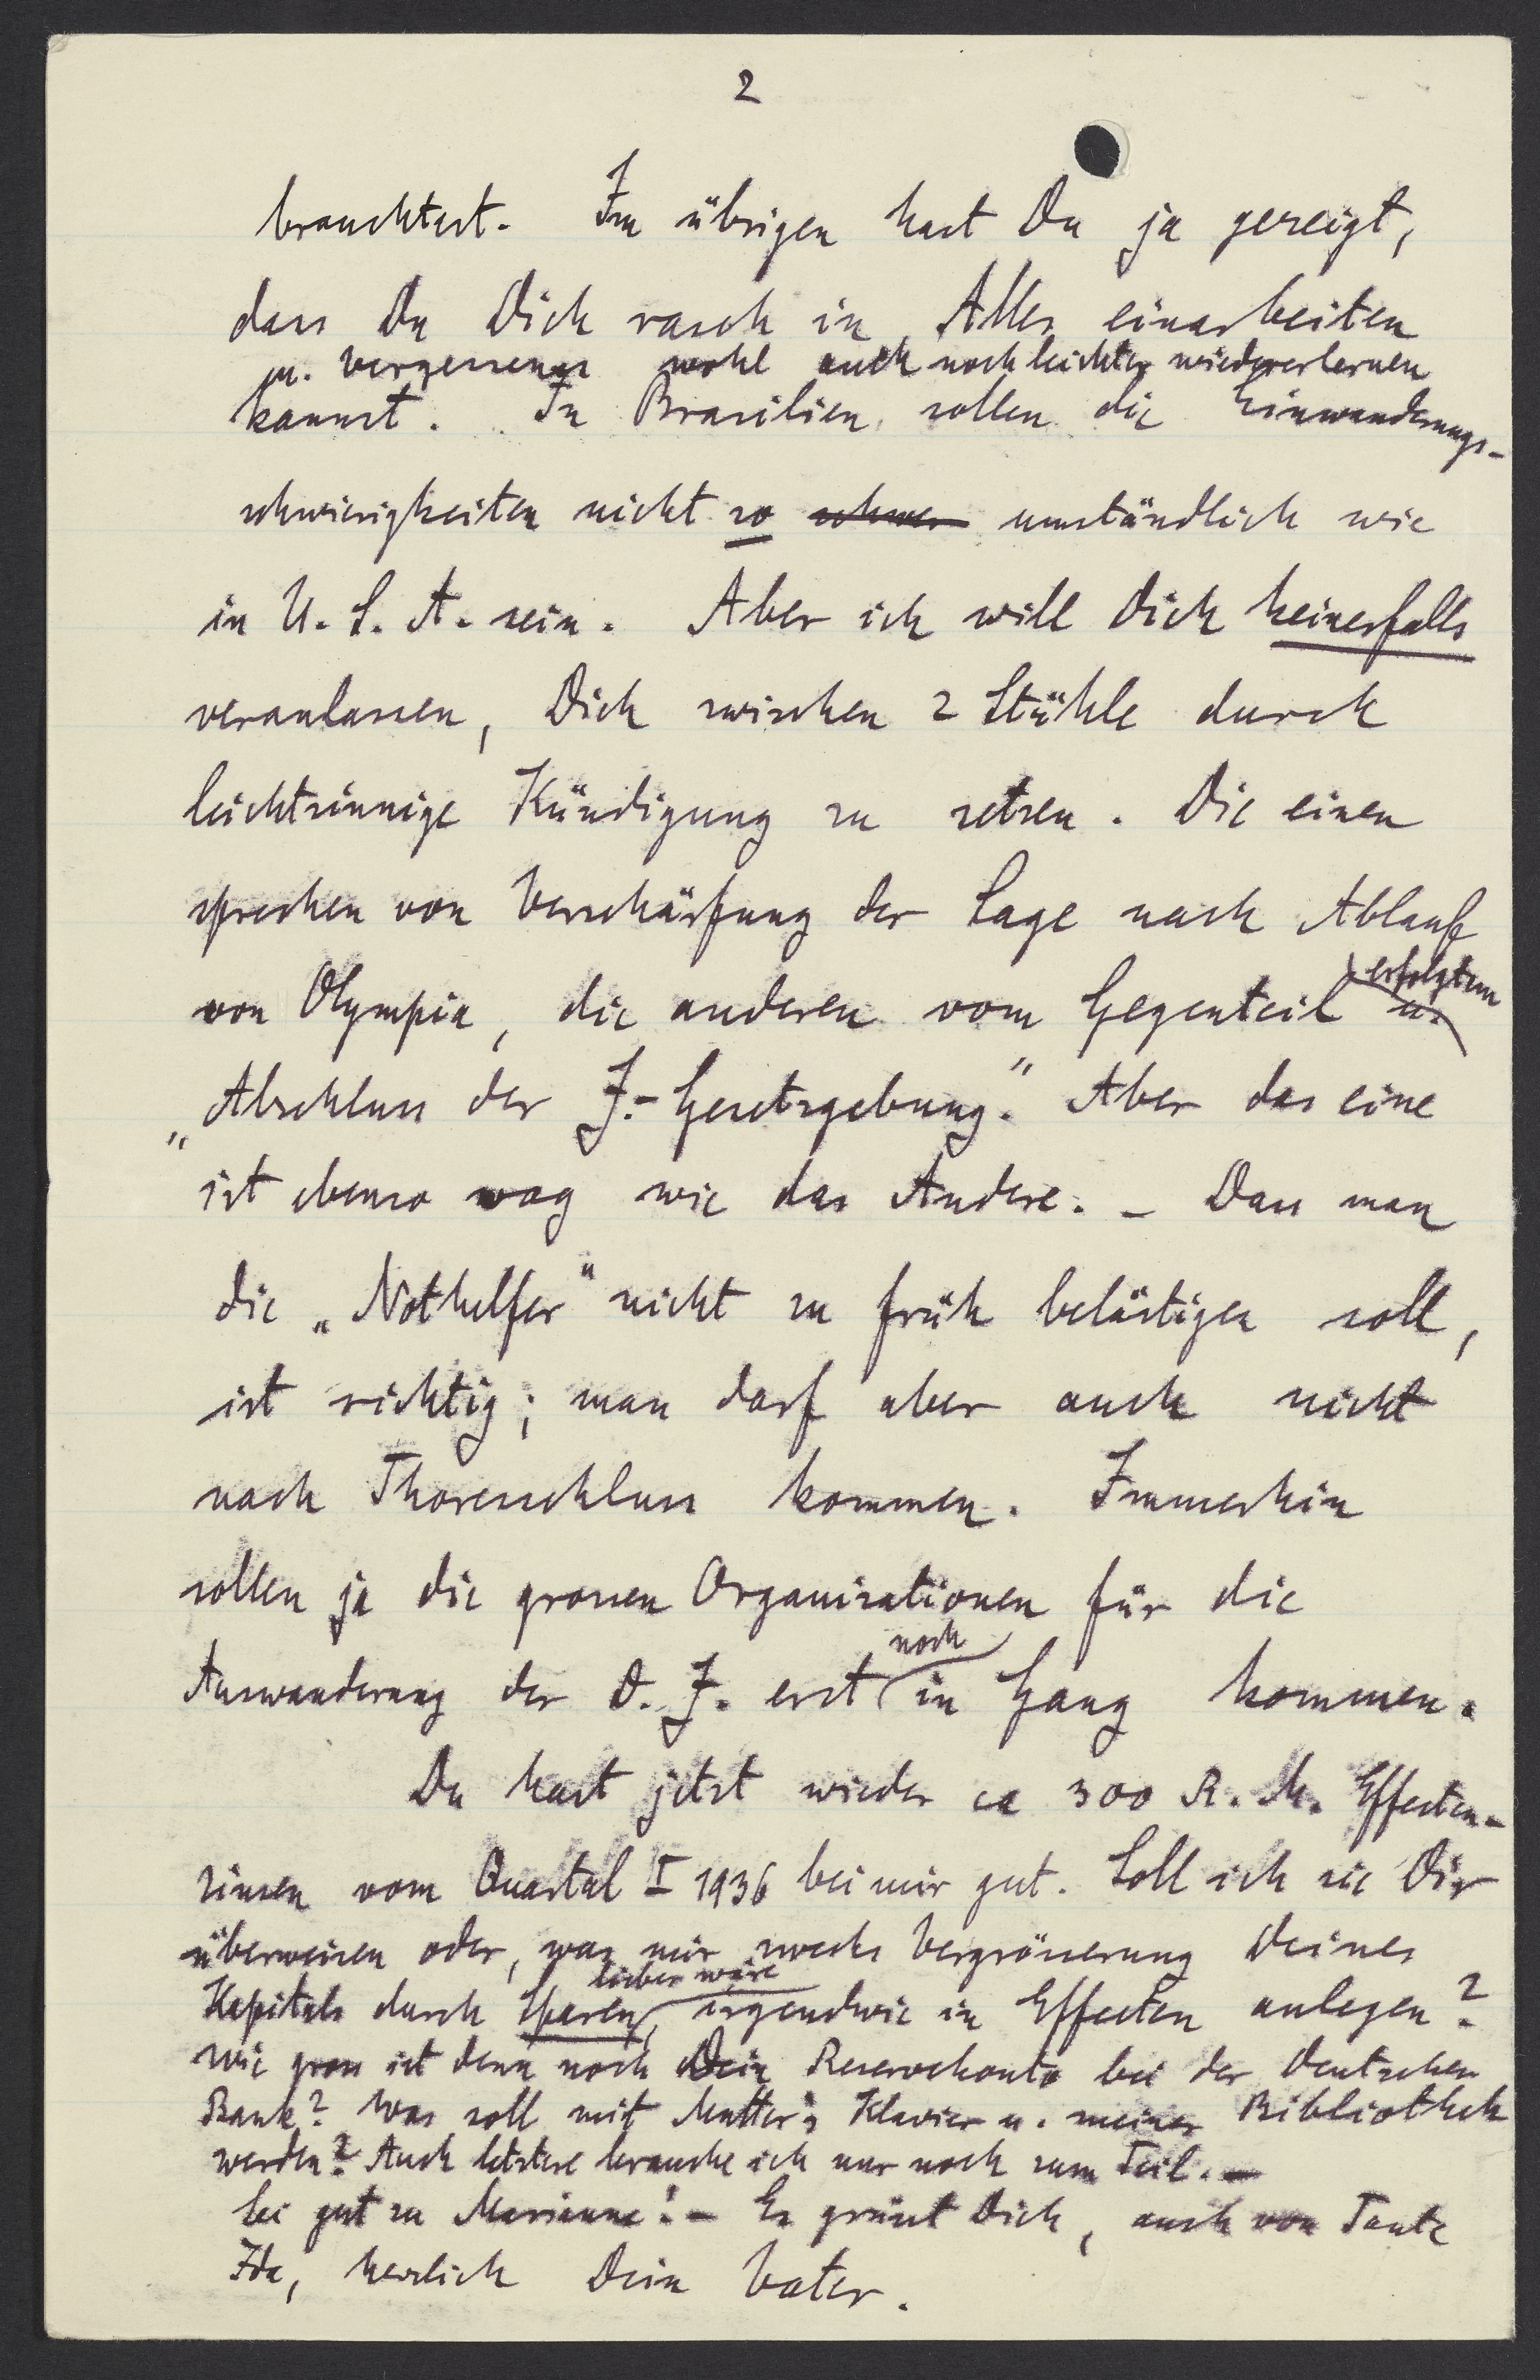 2
brauchtest. Im übrigen hast Du ja gezeigt,
dass Du Dich rasch in Alles einarbeiten
u. Vergessenes wohl auch noch leichter wiedererlernen
kannst. In Brasilien sollen die Einwanderungs-
schwierigkeiten nicht so schwer umständlich wie
in U.S.A. sein. Aber ich will Dich keinesfalls
veranlassen, Dich zwischen 2 Stühle durch
leichtsinnige Kündigung zu setzen. Die einen
sprechen von Verschärfung der Lage nach Ablauf
von Olympia, die anderen vom Gegenteil u.
erfolgtem
„Abschluss der J.-Gesetzgebung." Aber das eine
ist ebenso vag wie das Andere. – Dass man
die „Nothelfer" nicht zu früh belästigen soll,
ist richtig; man darf aber auch nicht
nach Thoresschluss kommen. Immerhin
sollen ja die grossen Organisationen für die
noch
Auswanderung der D. J. erst in Gang kommen.
Du hast jetzt wieder ca 300 R. M. Effecten-
zinsen vom Quartal I 1936 bei mir gut. Soll ich sie Dir
überweisen oder, was mir zwecks Vergrösserung Deines
lieber wäre
Kapitals durch Sparen, irgendwie in Effecten anlegen?
Wie gross ist denn noch Dein Reservekonto bei der Deutschen
Bank? Was soll mit Mutter's Klavier u. meiner Bibliothek
werden? Auch letztere brauche ich nur noch zum Teil. –
Sei gut zu Marianne! – Es grüsst Dich, auch von Tante
Ida, herzlich Dein Vater.